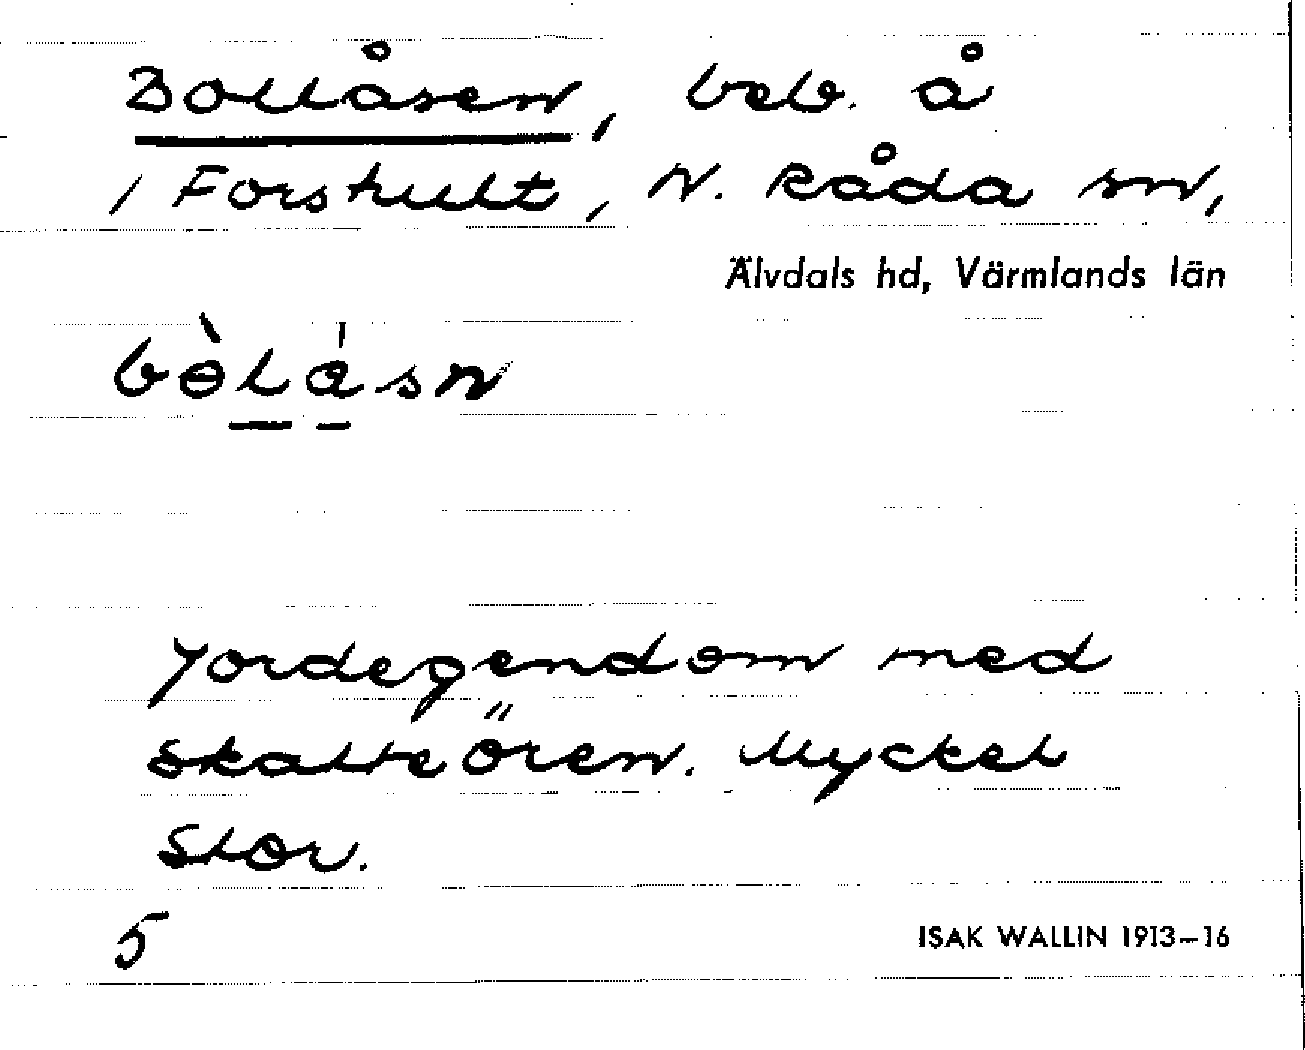 Bollåsen, beb. å
1 Forshult, N. Råda sn,
Älvdals hd, Värmlands län
Jordegendom med
skatteören. Mycket
stor.
5
ISAK WALLIN 1913–16